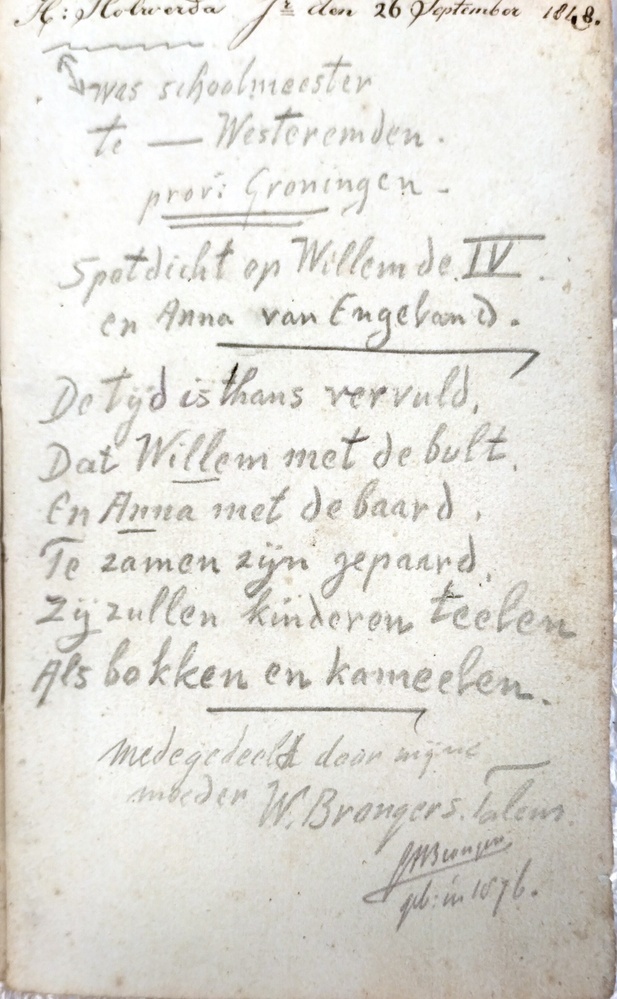 H: Holwerda Jr den 26 September 1848.
was schoolmeester
te — Westeremden.
prov: Groningen -
Spotdicht op Willem de IV.
en Anna van Engeland.
De tijd is thans vervuld,
Dat Willem met de bult,
En Anna met de baard,
Te zamen zijn gepaard,
Zij zullen kinderen teelen
Als bokken en kameelen.
medegedeelt door mijne
moeder W. Brongers. Talens.
geb: in 1876.